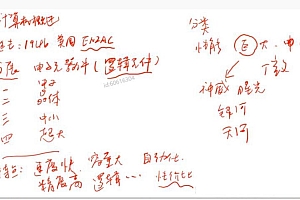 计算机概述
1946 美国 ENIAC
电子元器件(逻辑元件)
一
二 晶体
三 中小
四 超大
特点:速度快 容量大 自动化
精度高 逻辑… 性价比
分类
性能 巨 大、中
神威
银河
天河